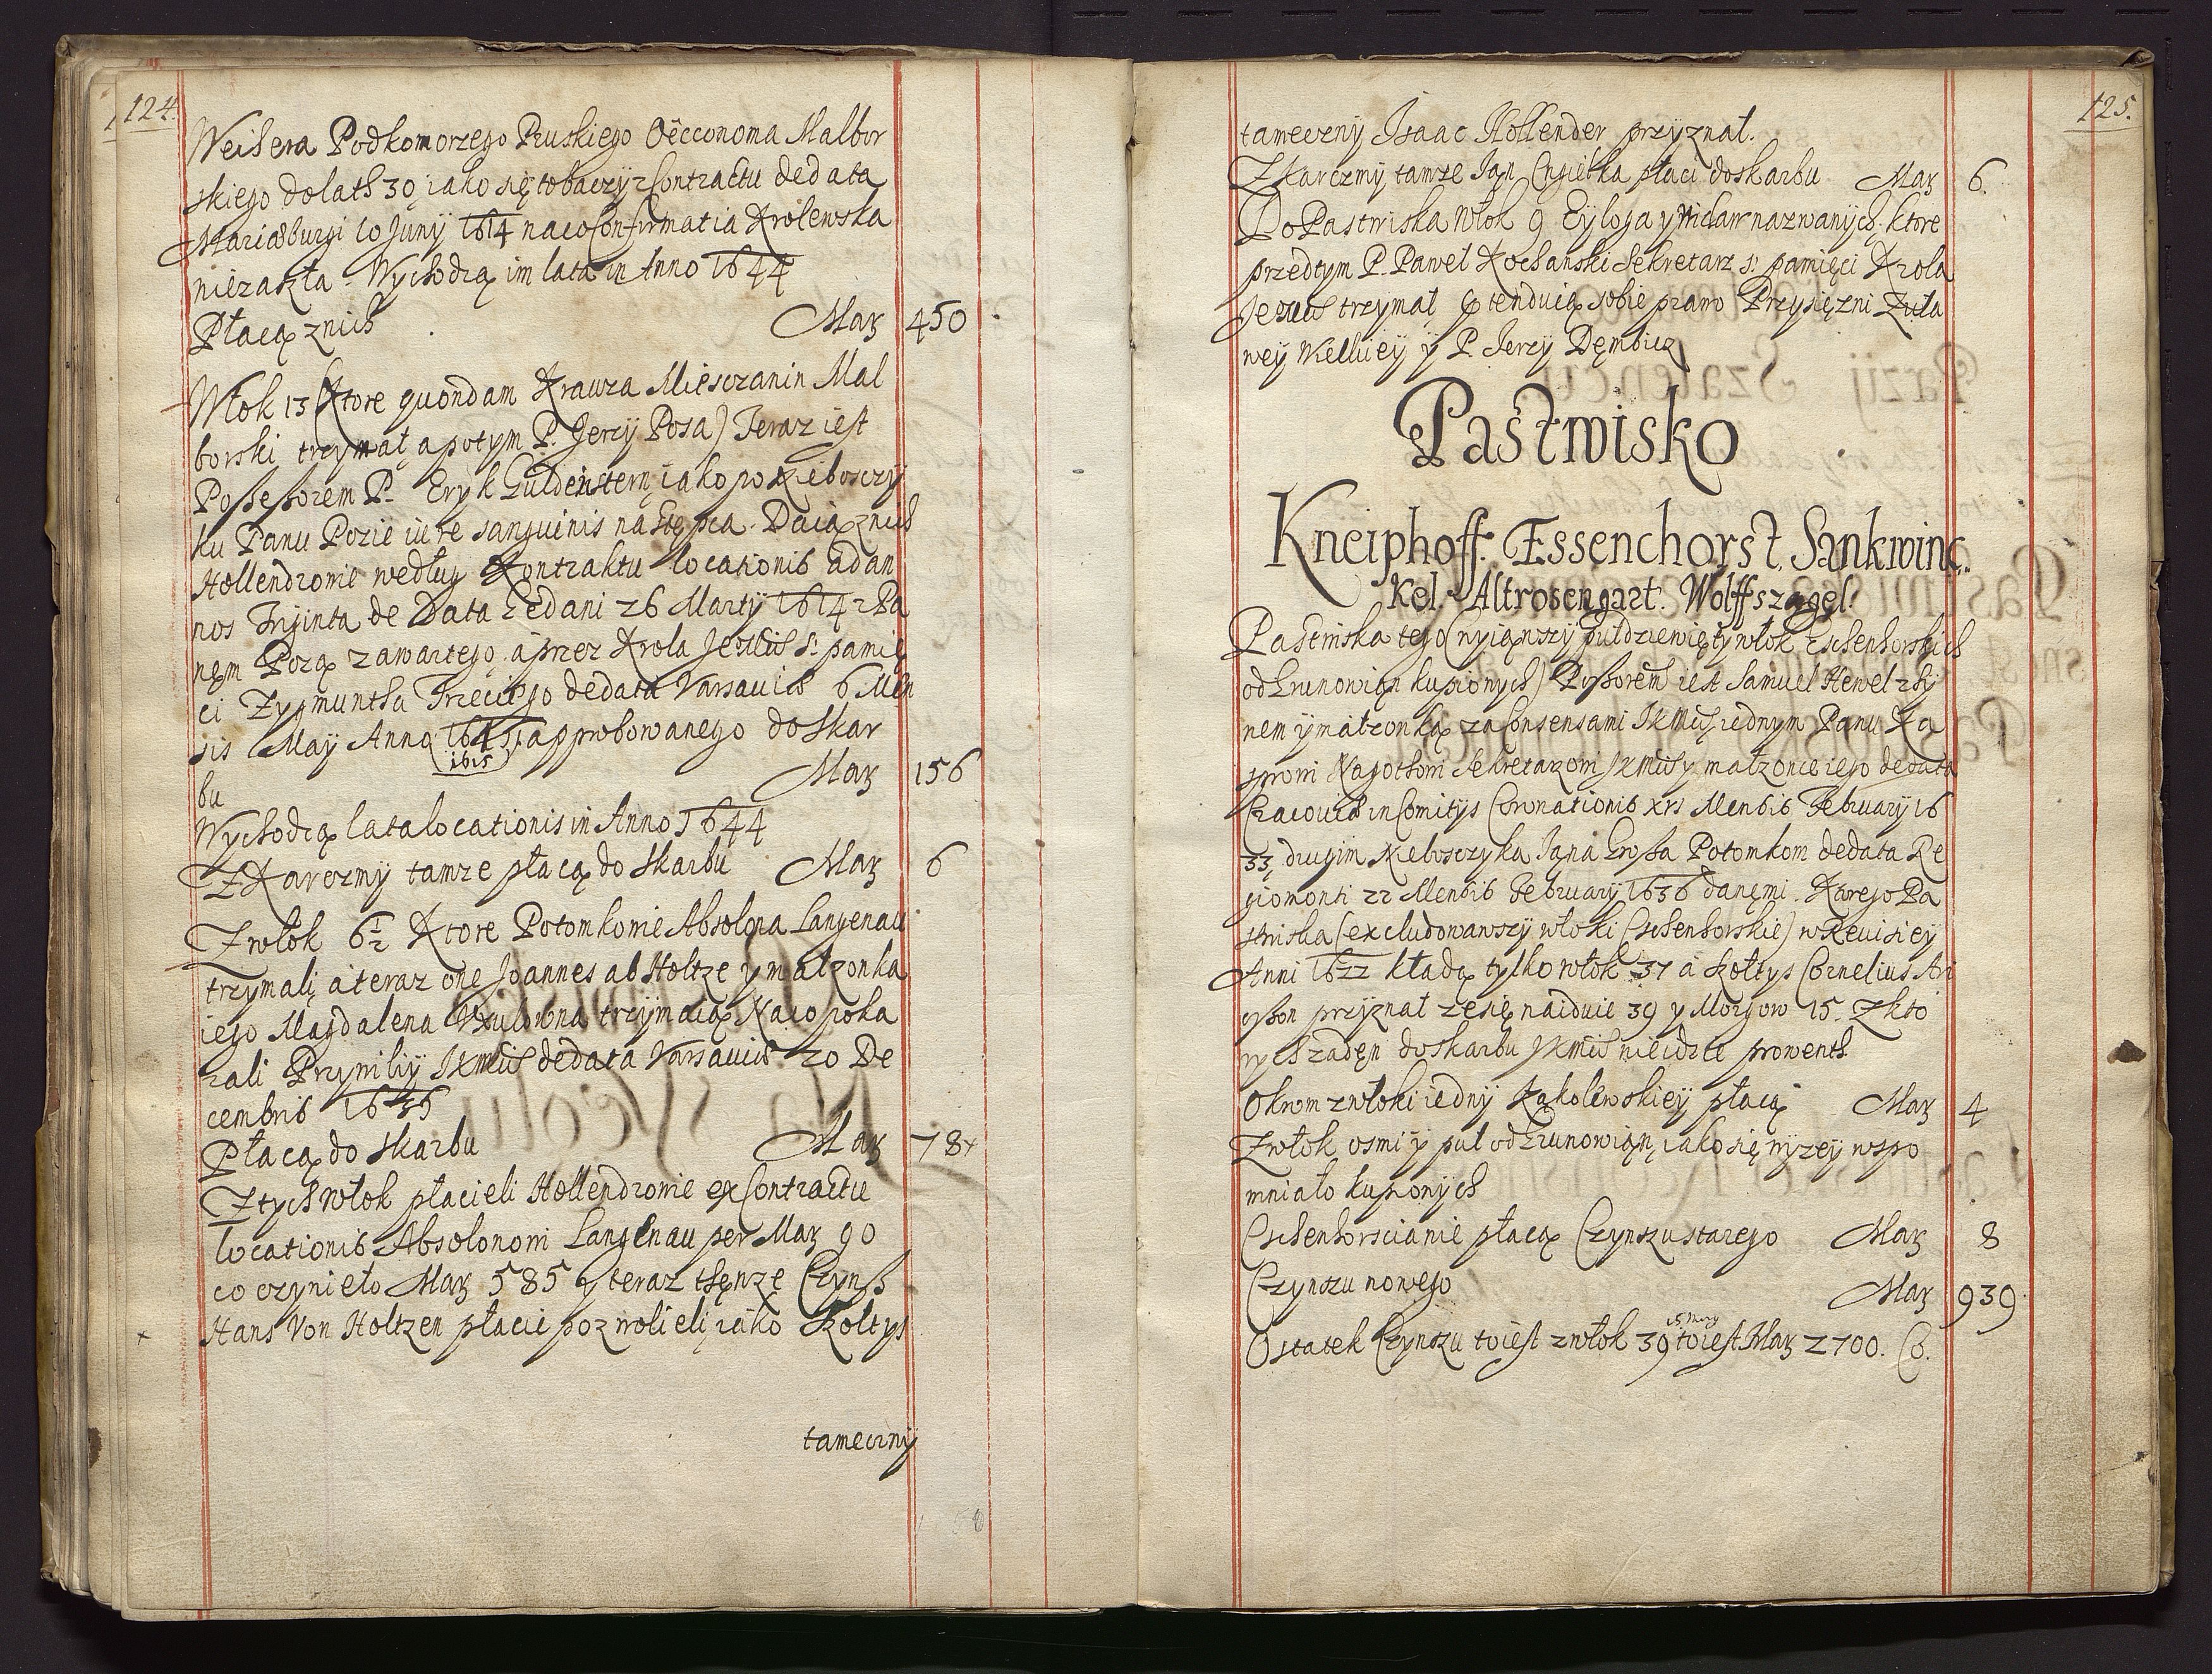 124.
Weihera Podkomorzego Pruskiego Oecconoma Malbor
skiego do lath 30, iako się to baczy z Contractu de data
Mariæburgi 10 Juny 1614 na co Confirmatia Krolewska
niezaszła. Wychodzą im lata in Anno 1644
Płacą z nich Mar 450
Włok 13 (Ktore quondam Krauza Miesczanin Mal
borski trzymał, a potym P. Jerzy Posa) Teraz iest
Possessorem P. Eryk Guldenstern, iako po Nieboszczy
ku Panu Pozie iure sanguinis następca. Daią z nich
Hollendrowie według Kontraktu locationis ad an
nos Trijinta de Data Zedani 26 Marty 1614 z Pa
nęm Pozą zawartego, a przez Krola Je Mci S. pamię
ci Zygmuntha Trzeciego de data Varsaviæ 6 Men
sis May Anno 1645 approbowanego do skar
1615
bu Mar 156
Wychodzą lata locationis in Anno 1644
Z Karczmy tamze płacą do Skarbu Mar 6
Z włok 6 1/2 Ktore Potomkowie Absolona Langenau
trzymali, a teraz one Joannes ab Holtze y małzonka
iego Magdalena trzymaią. Na co poka
zali Przywiliy JKMci de data Varsaviæ 20 De
cembris 1636
Płacą do Skarbu Mar 78
Z tych włok płacieli Hollendrowie ex Contractu
locationis Absolonowi Langenau per Mar 90
co czynieło Mar 585 y teraz thęnze Czynsz
Hans Von Holtzen płacić pozwolieli, iako Szołtys
tameczny
125.
tameczny Isaac Hollender przyznał.
Z Karczmy tamze Jan płaci do skarbu Mar 6.
Do Pastwiska Włok 9 Eyloga y nazwanych, ktore
przedtym P. Paweł Kochanski Sekretarz S. pamięci Krola
Je Mci trzymał, prętenduią sobie prawo Przysięzni Zuła
wey Wielkiey y P. Jerzy Dęmbicz
Pastwisko
Kneiphoff. Essenchorst. Sankwinc.
Kel. Altrosengart. Wolffszagel.
Pastwiska tego (wyiąwszy puł dziewięty włok Eschenhorskich
od Grunowian kupionych) Possorem iest Samuel Hewel z Sy
nem y małzonką za Consensami JKMci, iednym Panu Ka
sprowi Nagothowi Sekretarzowi JKMci y małzonce iego de data
Cracoviæ in Comitys Coronationis xrs Mensis February 16
33, drugim Nieboszczyka Jana Grossa Potomkom de data Re
giomonti 22 Mensis February 1636 danęmi. Ktorego Pa
stwiska (excludowawszy włoki Eschenhorskie) w Rewisiey
Anni 1622 kładą tylko włok 37 a Szołtys Cornelius Ari
osson przyznał ze się naiduie 39 y Morgow 15. Z kto
rych zadęn do skarbu JKMci nieidzie prowenth
Okrom z włoki iedny Kąkolewskiey płacą Mar 4
Z włok osmi y puł od Grunowian, iako się wyzey wspo
mniało kupionych
Eschenhorscianie płacą Czynszu starego Mar 8
Czynszu nowego Mar 939
15 Morg
Ostatek Czynszu to iest z włok 39 to iest Mar 2700.